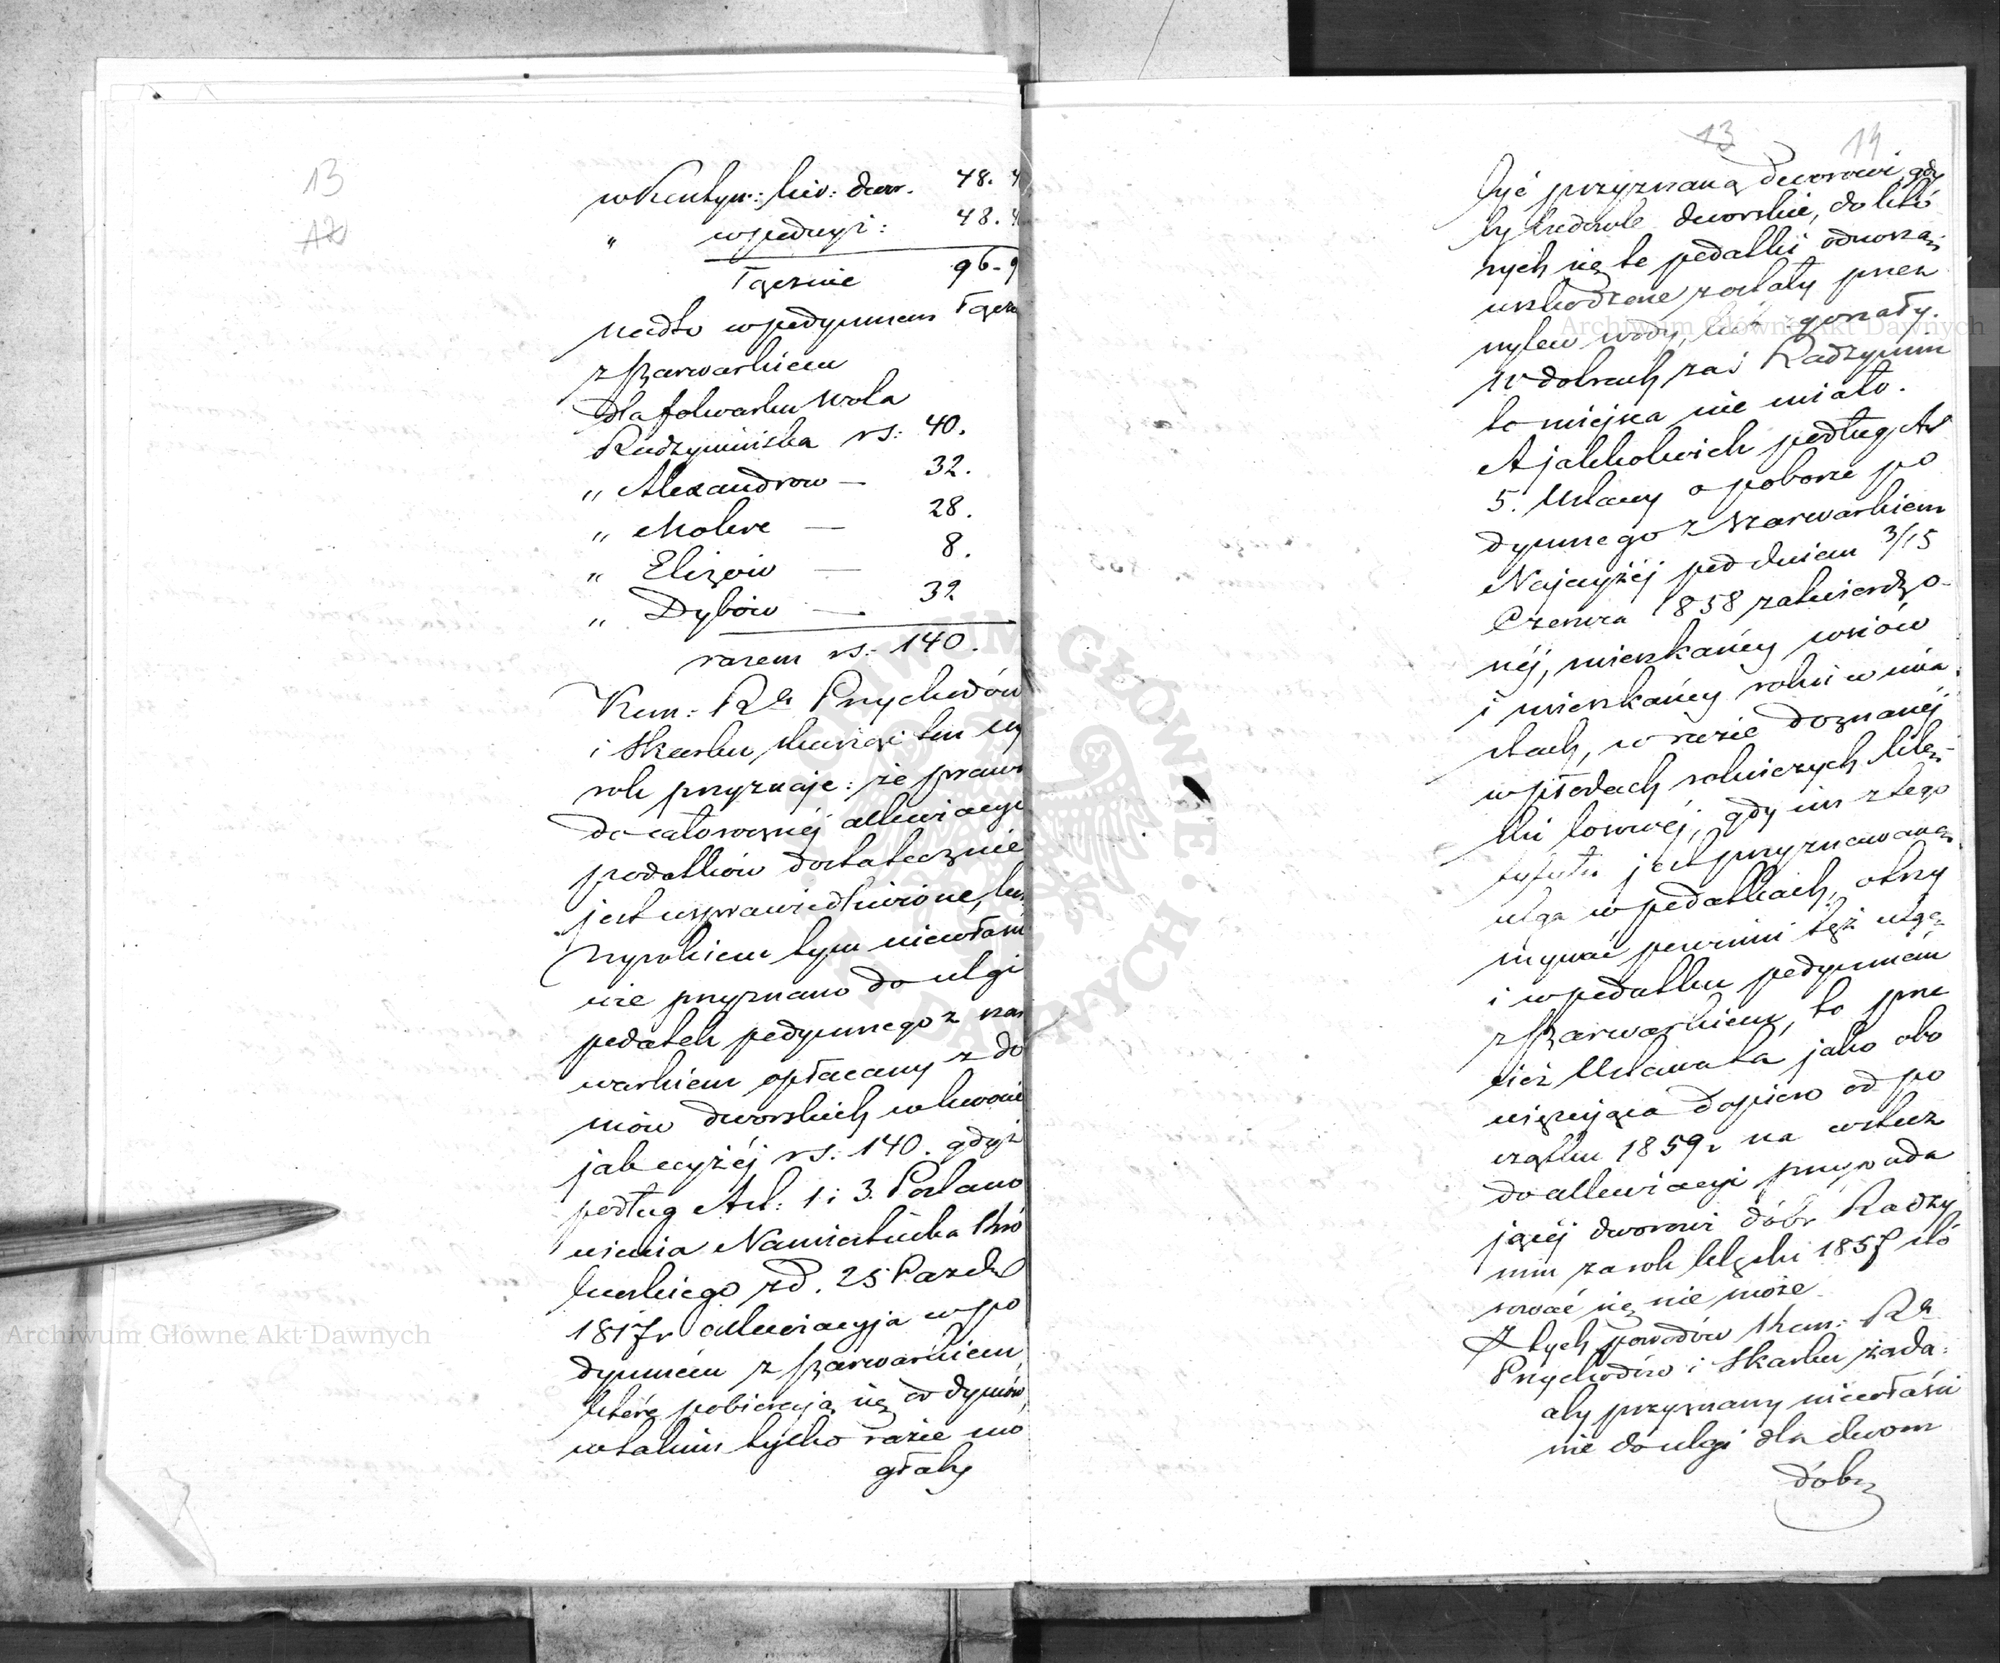 13
w Kontyn: liw: dwor. 48. 4
" w poduyż: 48. 4
Łącznie 96. 9
Nadto w podymnem Łączn
z szarwarkiem
Dla folwarku Wola
Radzymińska rs: 40.
" Alexandrow — 32.
" Mokre — 28.
" Elizów — 8.
" Dybów — 32
razem rs: 140.
Kom: Rz Przychodów
i Skarbu uważając ten wy
rok przyznaje: że prawo
do całorocznéj allewiacyi
podatków dostatecznie
jest usprawiedliwione, lecz
wyrokiem tym niewłaści
wie przyznano do ulgi
podatek podymnego z szar
warkiem opłacany z do
mów dworskich w kwocie
jak wyżéj rs: 140. gdyż
podług Art: 1 i 3. Postano
wienia Namiestnika Kró
lewskiego z d. 25 Paźdz
1817 r allewiacyja w po
dymném z szarwarkiem
które pobierają się od dymów,
w takim tylko razie mo
głaby
13 14
być przyznaną dworowi, gdy
by budowle dworskie, do któ
rych się te podatki odnoszą,
uszkodzone zostały przez
wylew wody, lub zgorzały.
W dobrach zaś Radzymin
to miejsca nie miało.
A jakkolwiek podług Art
5. Ustawy o poborze po
dymnego z szarwarkiem
Najwyżéj pod dniem 3/15
Czerwca 1858 zatwierdzo-
néj, mieszkańcy wsiów
i mieszkańcy rolni w mia
stach, w razie doznanéj
w płodach rolniczych klęs-
ki losowéj, gdy im z tego
tytułu jest przyznawaną
ulga w podatkach, otrzy
mywać powinni też ulgę
i w podatku podymném
z szarwarkiem, to prze
cież Ustawa ta jako obo
wiązująca dopiero od po
czątku 1859 r na wstecz
do allewiacyi przypada
jącéj dworowi dóbr Radzy
min za rok klęski 1857 sto
sować się nie może.
Z tych powodów Kom: Rz
Przychodów i Skarbu żąda:
aby przyznany niewłaści
wie do ulgi dla dworu
dóbr